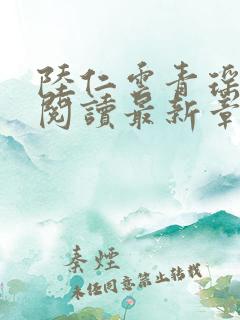 陸仁雲青瑤
閱讀最新章
秦煙
未经同意禁止转载